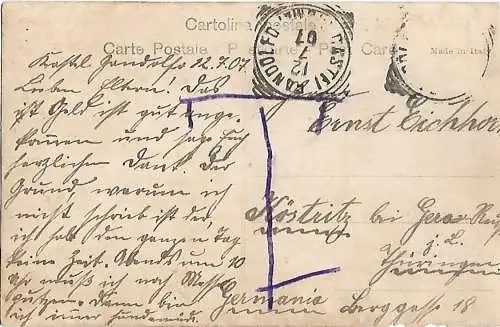 Cartolina postale
Carte Postale Postkarte Post Card
Made in Italy
CASTEL GANDOLFO
12 7 07
Kastel Gandolfo 12.7.07.
Lieben Eltern. Das
ist Geld ist gut ange-
kommen und sage Euch
herzlichen Dank. Der
Grund warum ich
nicht schrieb ist der,
ich hab den ganzen Tag
keine Zeit. Abends um 10
Uhr muß ich noch Messer
putzen. Dann bin
ich immer hundemüd.
Ernst Eichhorn
Köstritz bei Gera-Reuß
j. L.
Thüringen
Germania
Berggasse 18